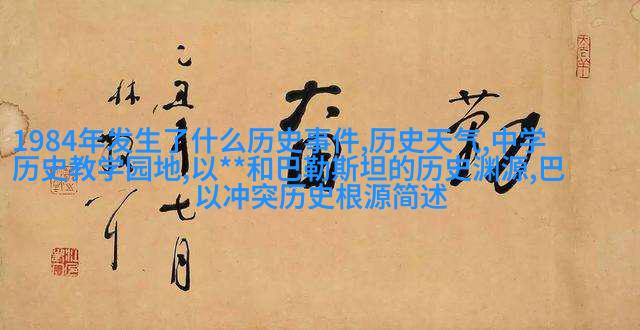 1984年发生了什么历史事件,历史天气,中学
历史教学园地,以**和巴勒斯坦的历史渊源,巴
以冲突历史根源简述
勤奮
乙丑年七月
林散